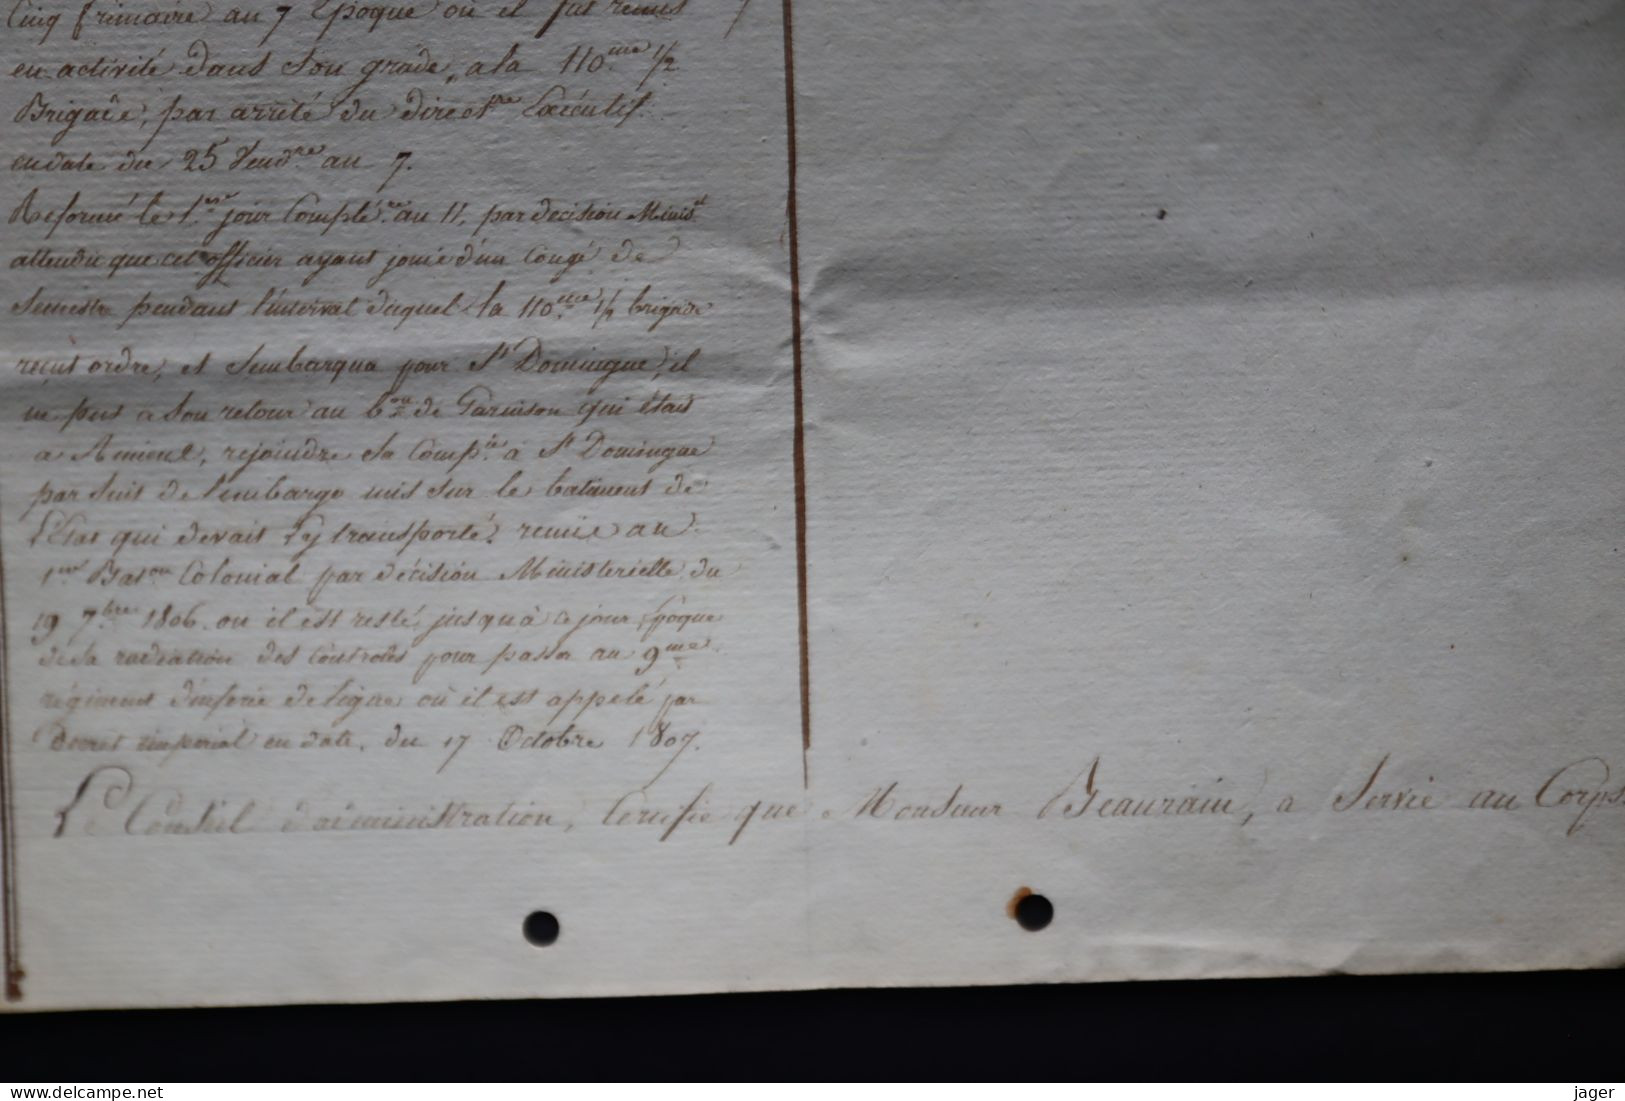 Cinq frimaire an 7 Epoque où il fut remis
en activité dans son grade, a la 110.me 1/2
Brigade, par arrêté du Direct.re Exécutif
en date du 25 Vend.re an 7.
Reformé le 1.er jour Complé.re an 11, par decision Minis.lle
attendu que cet officier ayant joui d'un Congé de
Semestre pendant l'interval duquel la 110.eme 1/2 brigade
reçut ordre, et s'embarqua pour St Domingue, il
ne put a son retour au b.on de Garnison qui était
a Amiens, rejoindre sa Comp.ie à St Domingue
par suit de l'embargo mis sur le batiment de
l'Etat qui devait l'y transporté. remie au
1.er Bat.on Colonial par décision Ministerielle du
19 7.bre 1806. ou il est resté, jusqu'à ce jour, Epoque
de sa radiation des controles pour passer au 9.me
régiment d'inferie de ligne où il est appelé par
Decret imperial en date, du 17 Octobre 1807.
Le Conseil d'administration, Certifie que Monsieur Beaurain, a Servie au Corps
delcampe.net
jager